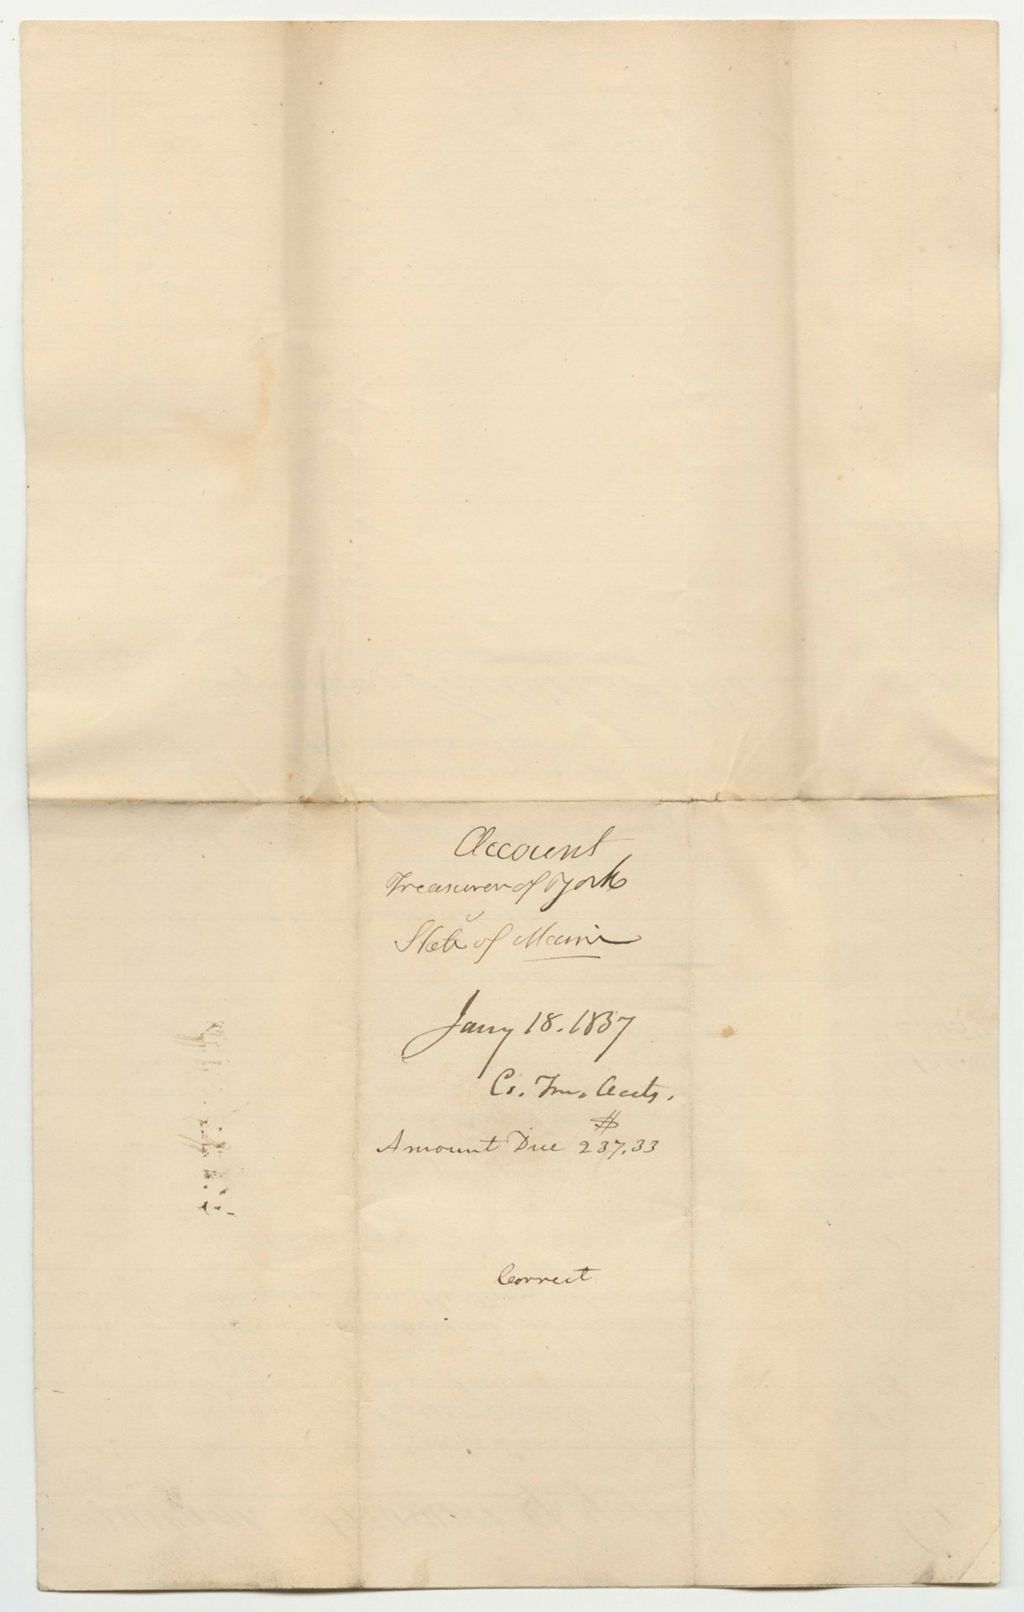 Account
Treasurer of York
State of Maine
Jany 18. 1837
Co. Tre. Accts.
$
Amount Due 237.33
Correct